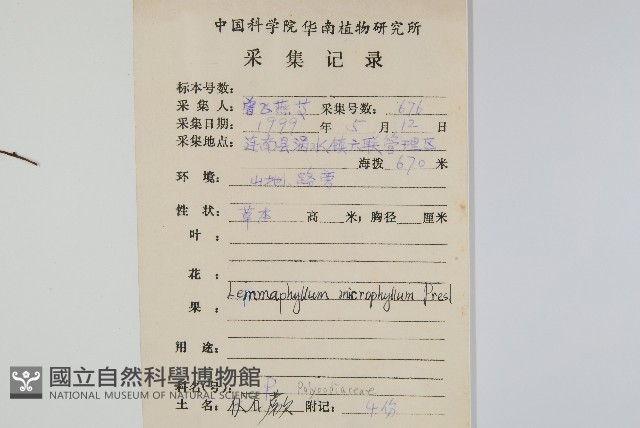 中国科学院华南植物研究所
采集记录
标本号数：
采集人：曾飞燕等 采集号数：676
采集日期：1999年5月12日
采集地点：连南县涡水镇六联管理区
海拨670米
环境：山地，路旁
性状：草本 高 米；胸径 厘米
叶：
花：
Lemmaphyllum microphyllum Presl
果：
用途：
國立自然科學博物館
NATIONAL MUSEUM OF NATURAL SCIENCE
科名(号)：P. Polypodiaceae
土名：伏石蕨 附记：4份